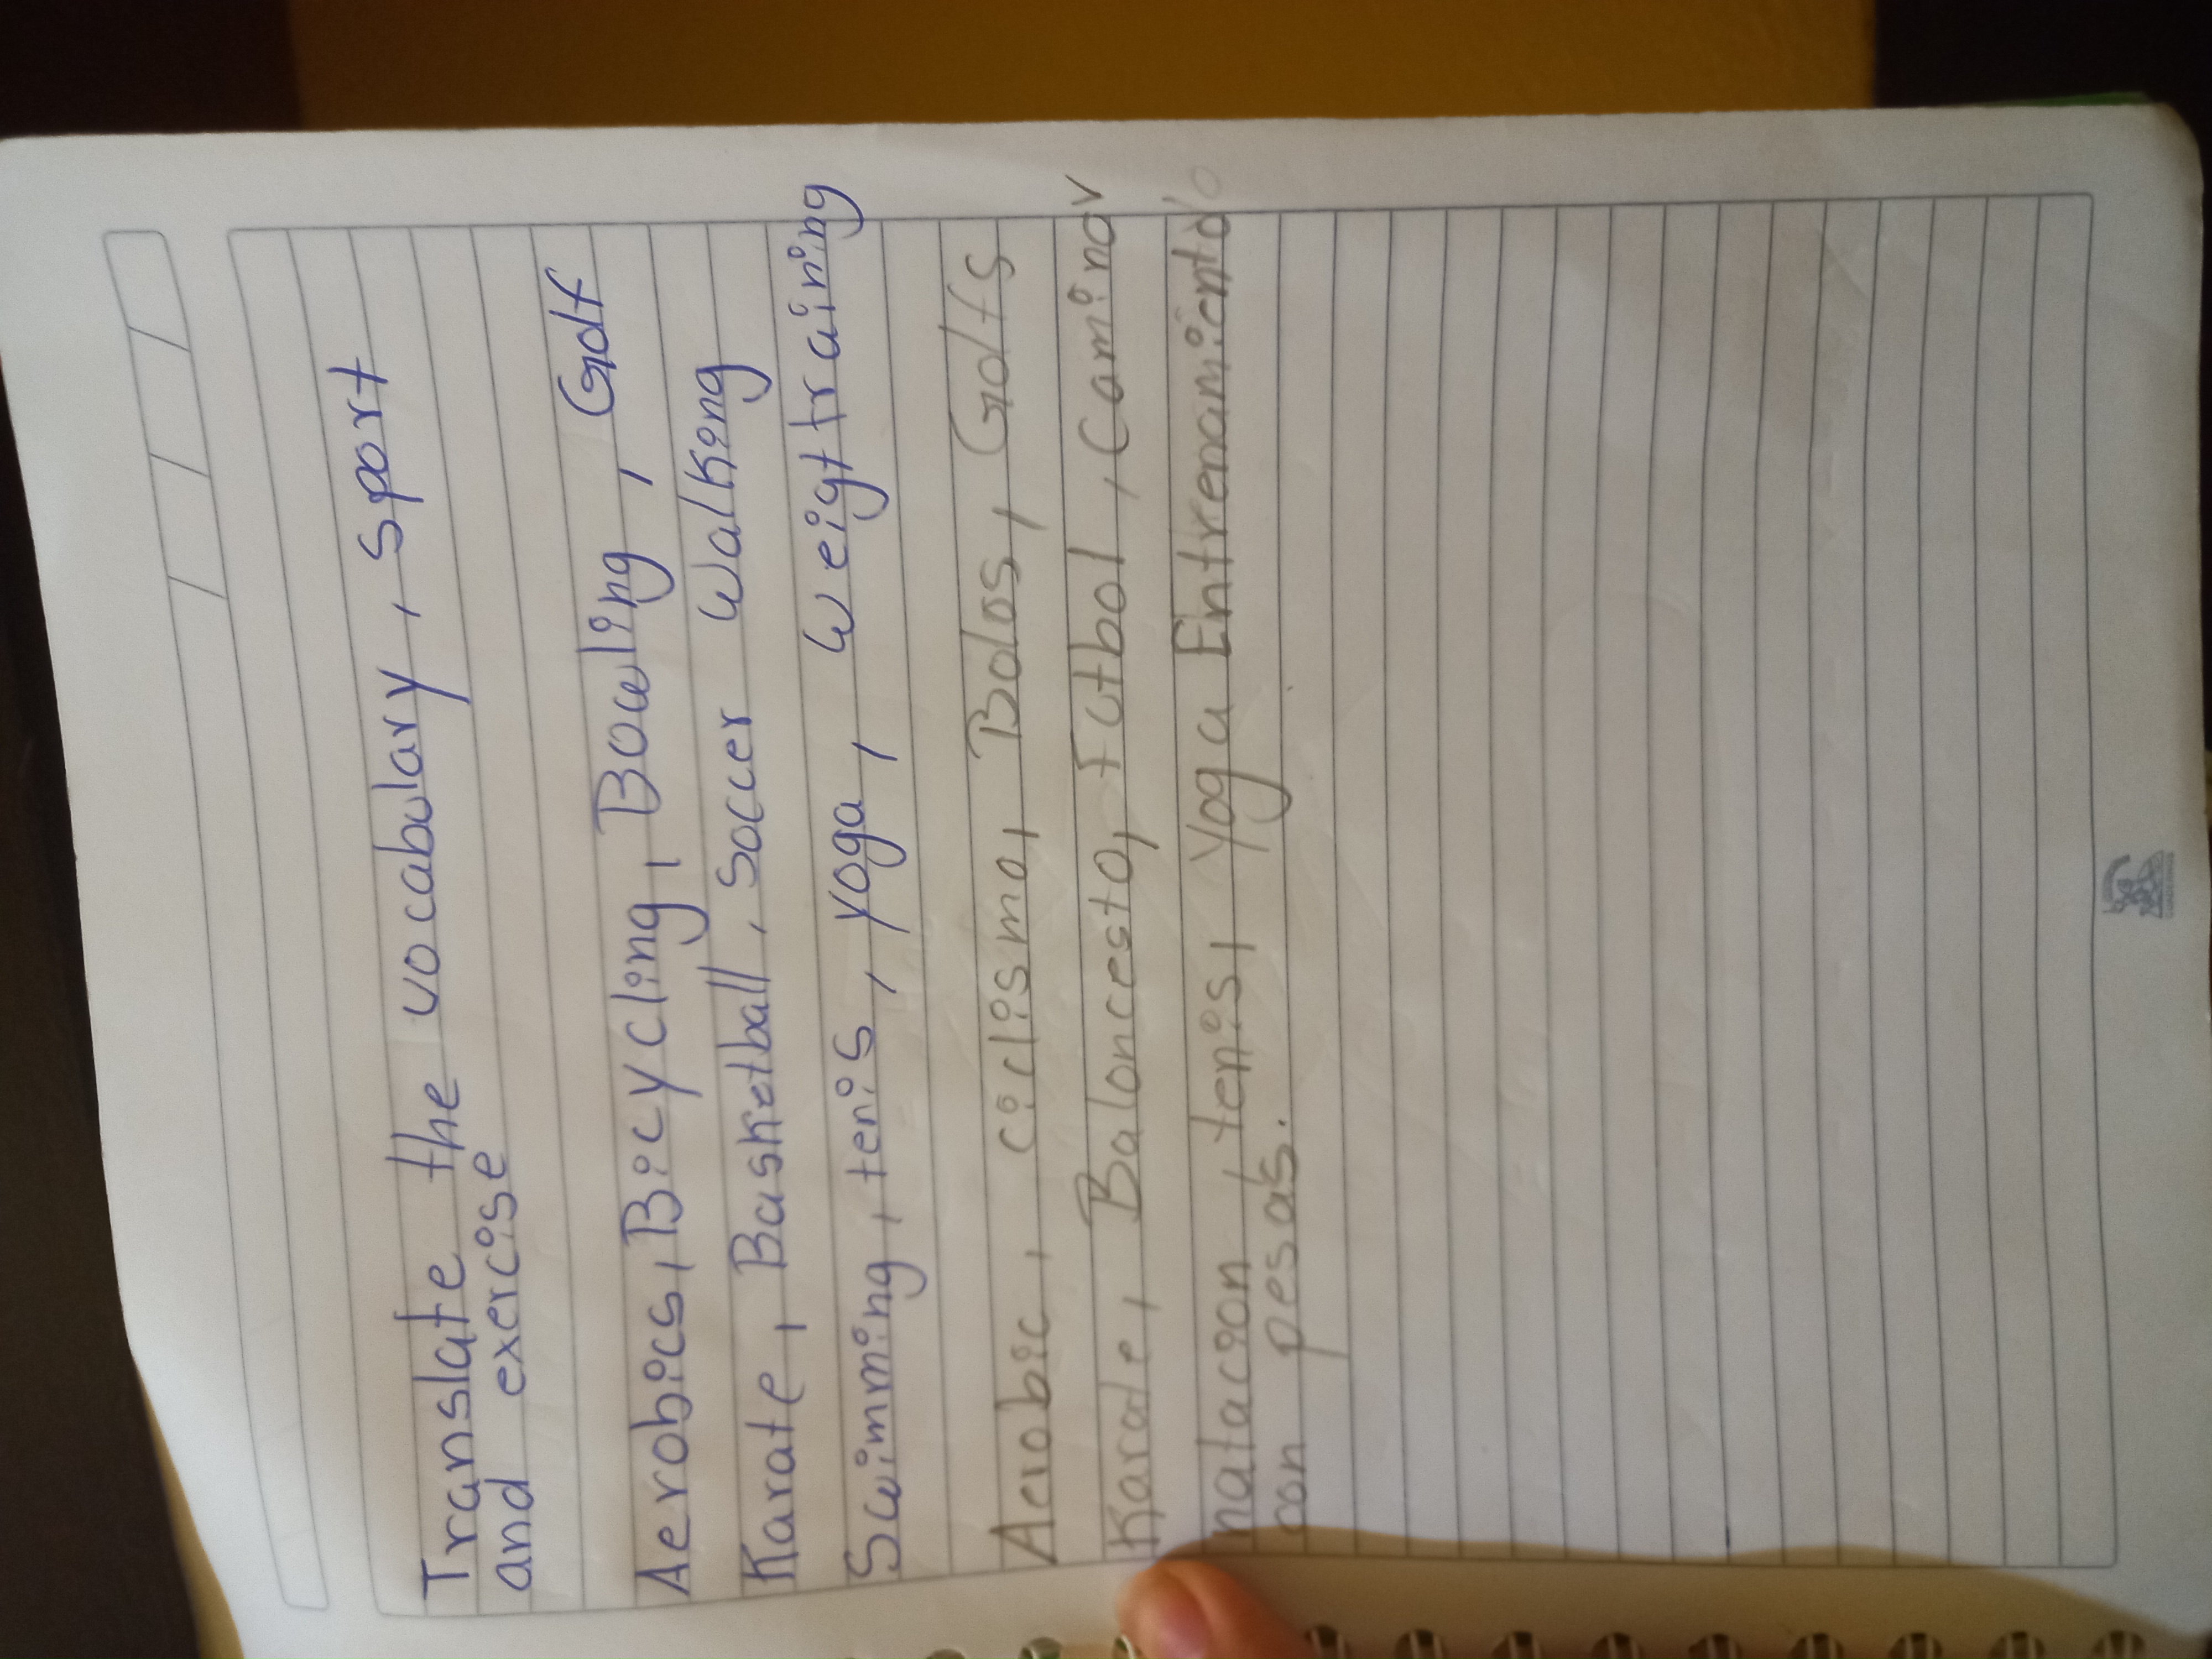 Translate the vocabulary, sport
and exercise
Aerobics, Bicycling, Bowling, Golf
Karate, Basketball, Soccer Walking
Swimming, tenis, yoga, weigttraining
Aerobic, ciclismo, Bolos, Golfs
Karate, Baloncesto, Futbol, Caminar
natacion, tenis, Yoga Entrenamiento
con pesas.